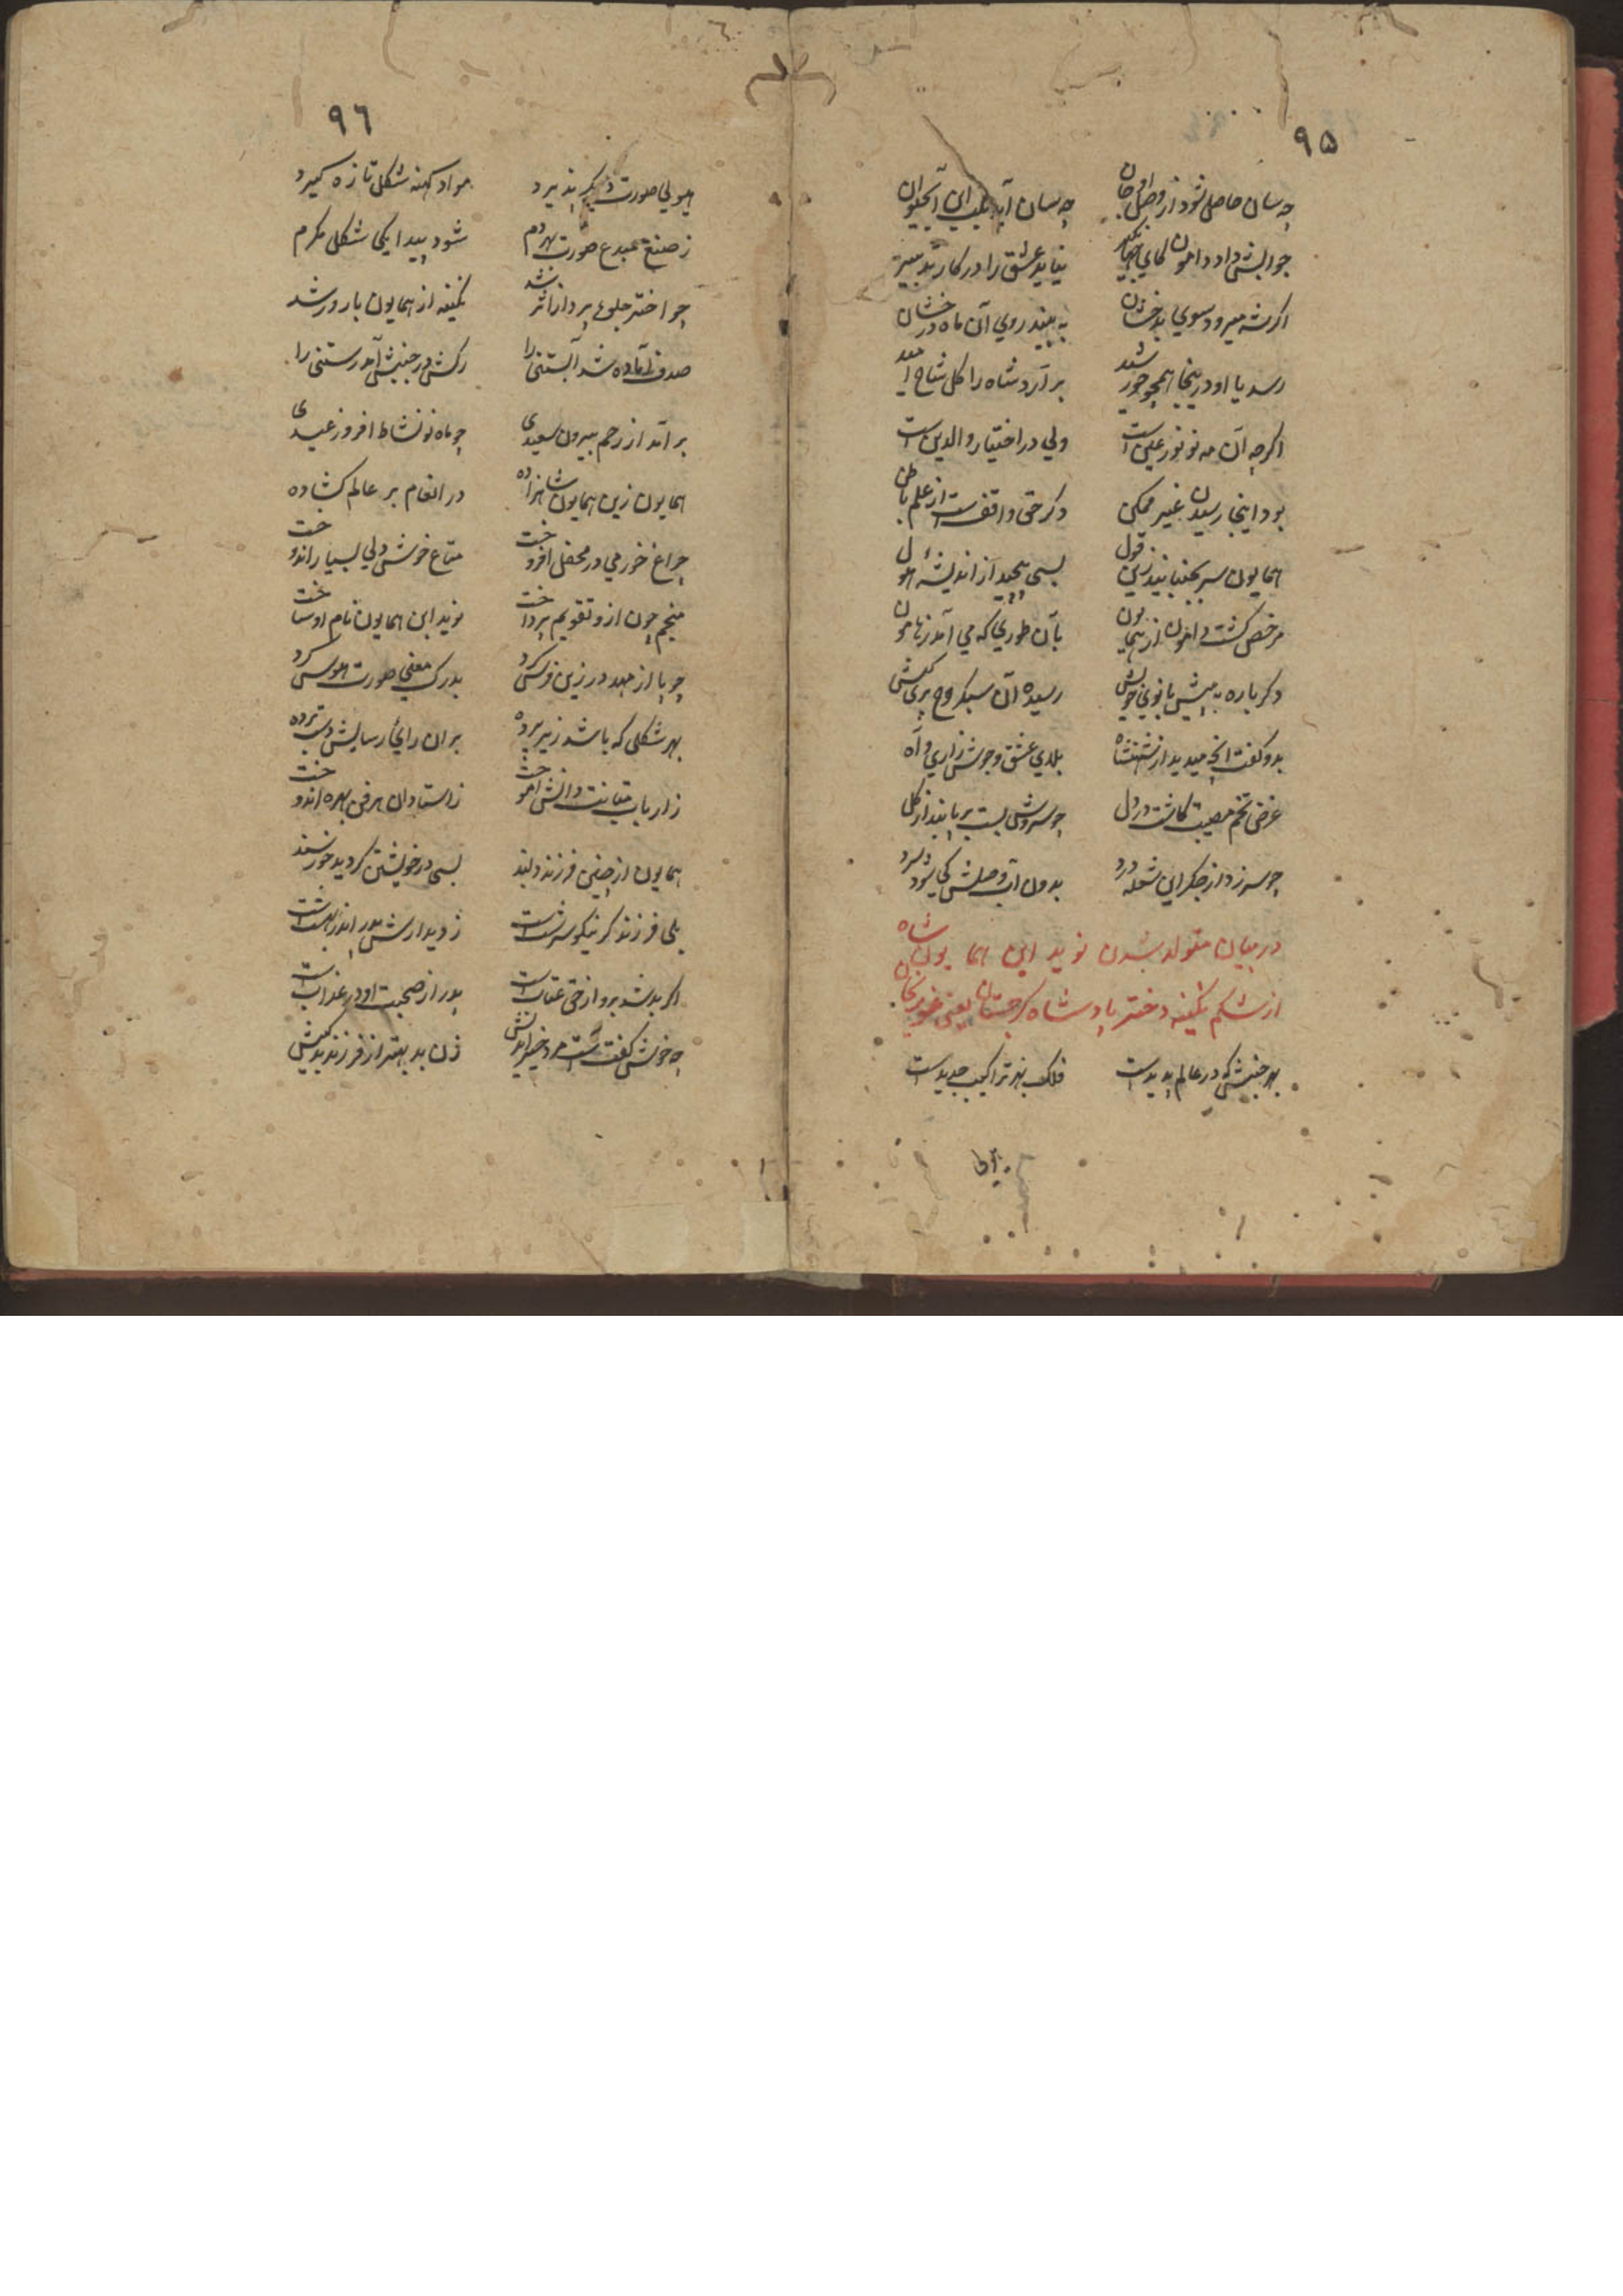 ۹۵
چه سان حاصل شود از وصل او جان چه سان آید بلب این آبحیوان
جوابش داد دامون کای جهانگیر نیاید عشق را در کار تدبیر
اگر شه میرود سوی بدخشان به بیند روی آن ماه درخشان
رسد یا او درینجا همچو خورشید بر آرد شاه را گل شاخ امید
اگرچه آن مه نو نور عین است ولی در اختیار والدین است
بود اینجا رسیدن غیر ممکن دگر حق واقفست از علم باطن
همایون سر بجنبانید زین قول بسی پیچید از اندیشه هول
مرخص گشت دامون از همایون بآن طوری که می آمد زهامون
دگر باره به پیش بانوی خویش رسیده آن سبکروح پری کیش
بدو گفت آنچه میدید از شهنشاه بلای عشق و جوش زاری و آه
غرض تخم مصیبت کاشت در دل چو سروش بست بر پا بند از گل
چو سر زد از جگر این شعله درد بدون آب وصلش کی شود سرد
در بیان متولد شدن نوید ابن همایون شاه
از شکم نگینه دختر پادشاه گرجستان یعنی
بهر جنبش که در عالم پدیدست فلک بهر تراکیب جدیدست
هیولی
۹٦
هیولی صورت دیگر پذیرد مواد کهنه شکل تازه گیرد
ز صنع مبدع صورت بهر دم شود پیدا یکی شکل مکرم
چو اختر جلوه پرداز اثر شد نگینه از همایون بارور شد
صدف آماده شد آبستنی را رکش در جنبش آمد رستنی را
بر آمد از رحم بیرون سعیدی چو ماه نو نشاط افروز عیدی
همایون زین همایون شاهزاده در انعام بر عالم گشاده
چراغ خرمی در محفل افروخت متاع خوشدلی بسیار اندوخت
منجم چون ازو تقویم پرداخت نوید ابن همایون نام او ساخت
چو پا از مهد در زین فرس کرد بدرک معنی صورت هوس کرد
بهر شکلی که باشد زیر پرده بران رای رسایش دست برده
ز ارباب متانت دانش آموخت ز استادان هر فن بهره اندوخت
همایون از چنین فرزند دلبند بسی در خویشتن گردید خورسند
بلی فرزند گر نیکو سرشت است ز دیدارش پدر اندر بهشت است
اگر بد شد برو از حق عقاب است پدر از صحبت او در عذاب است
چه خوش گفت است مرد خیر اندیش زن بد بهتر از فرزند بدکیش